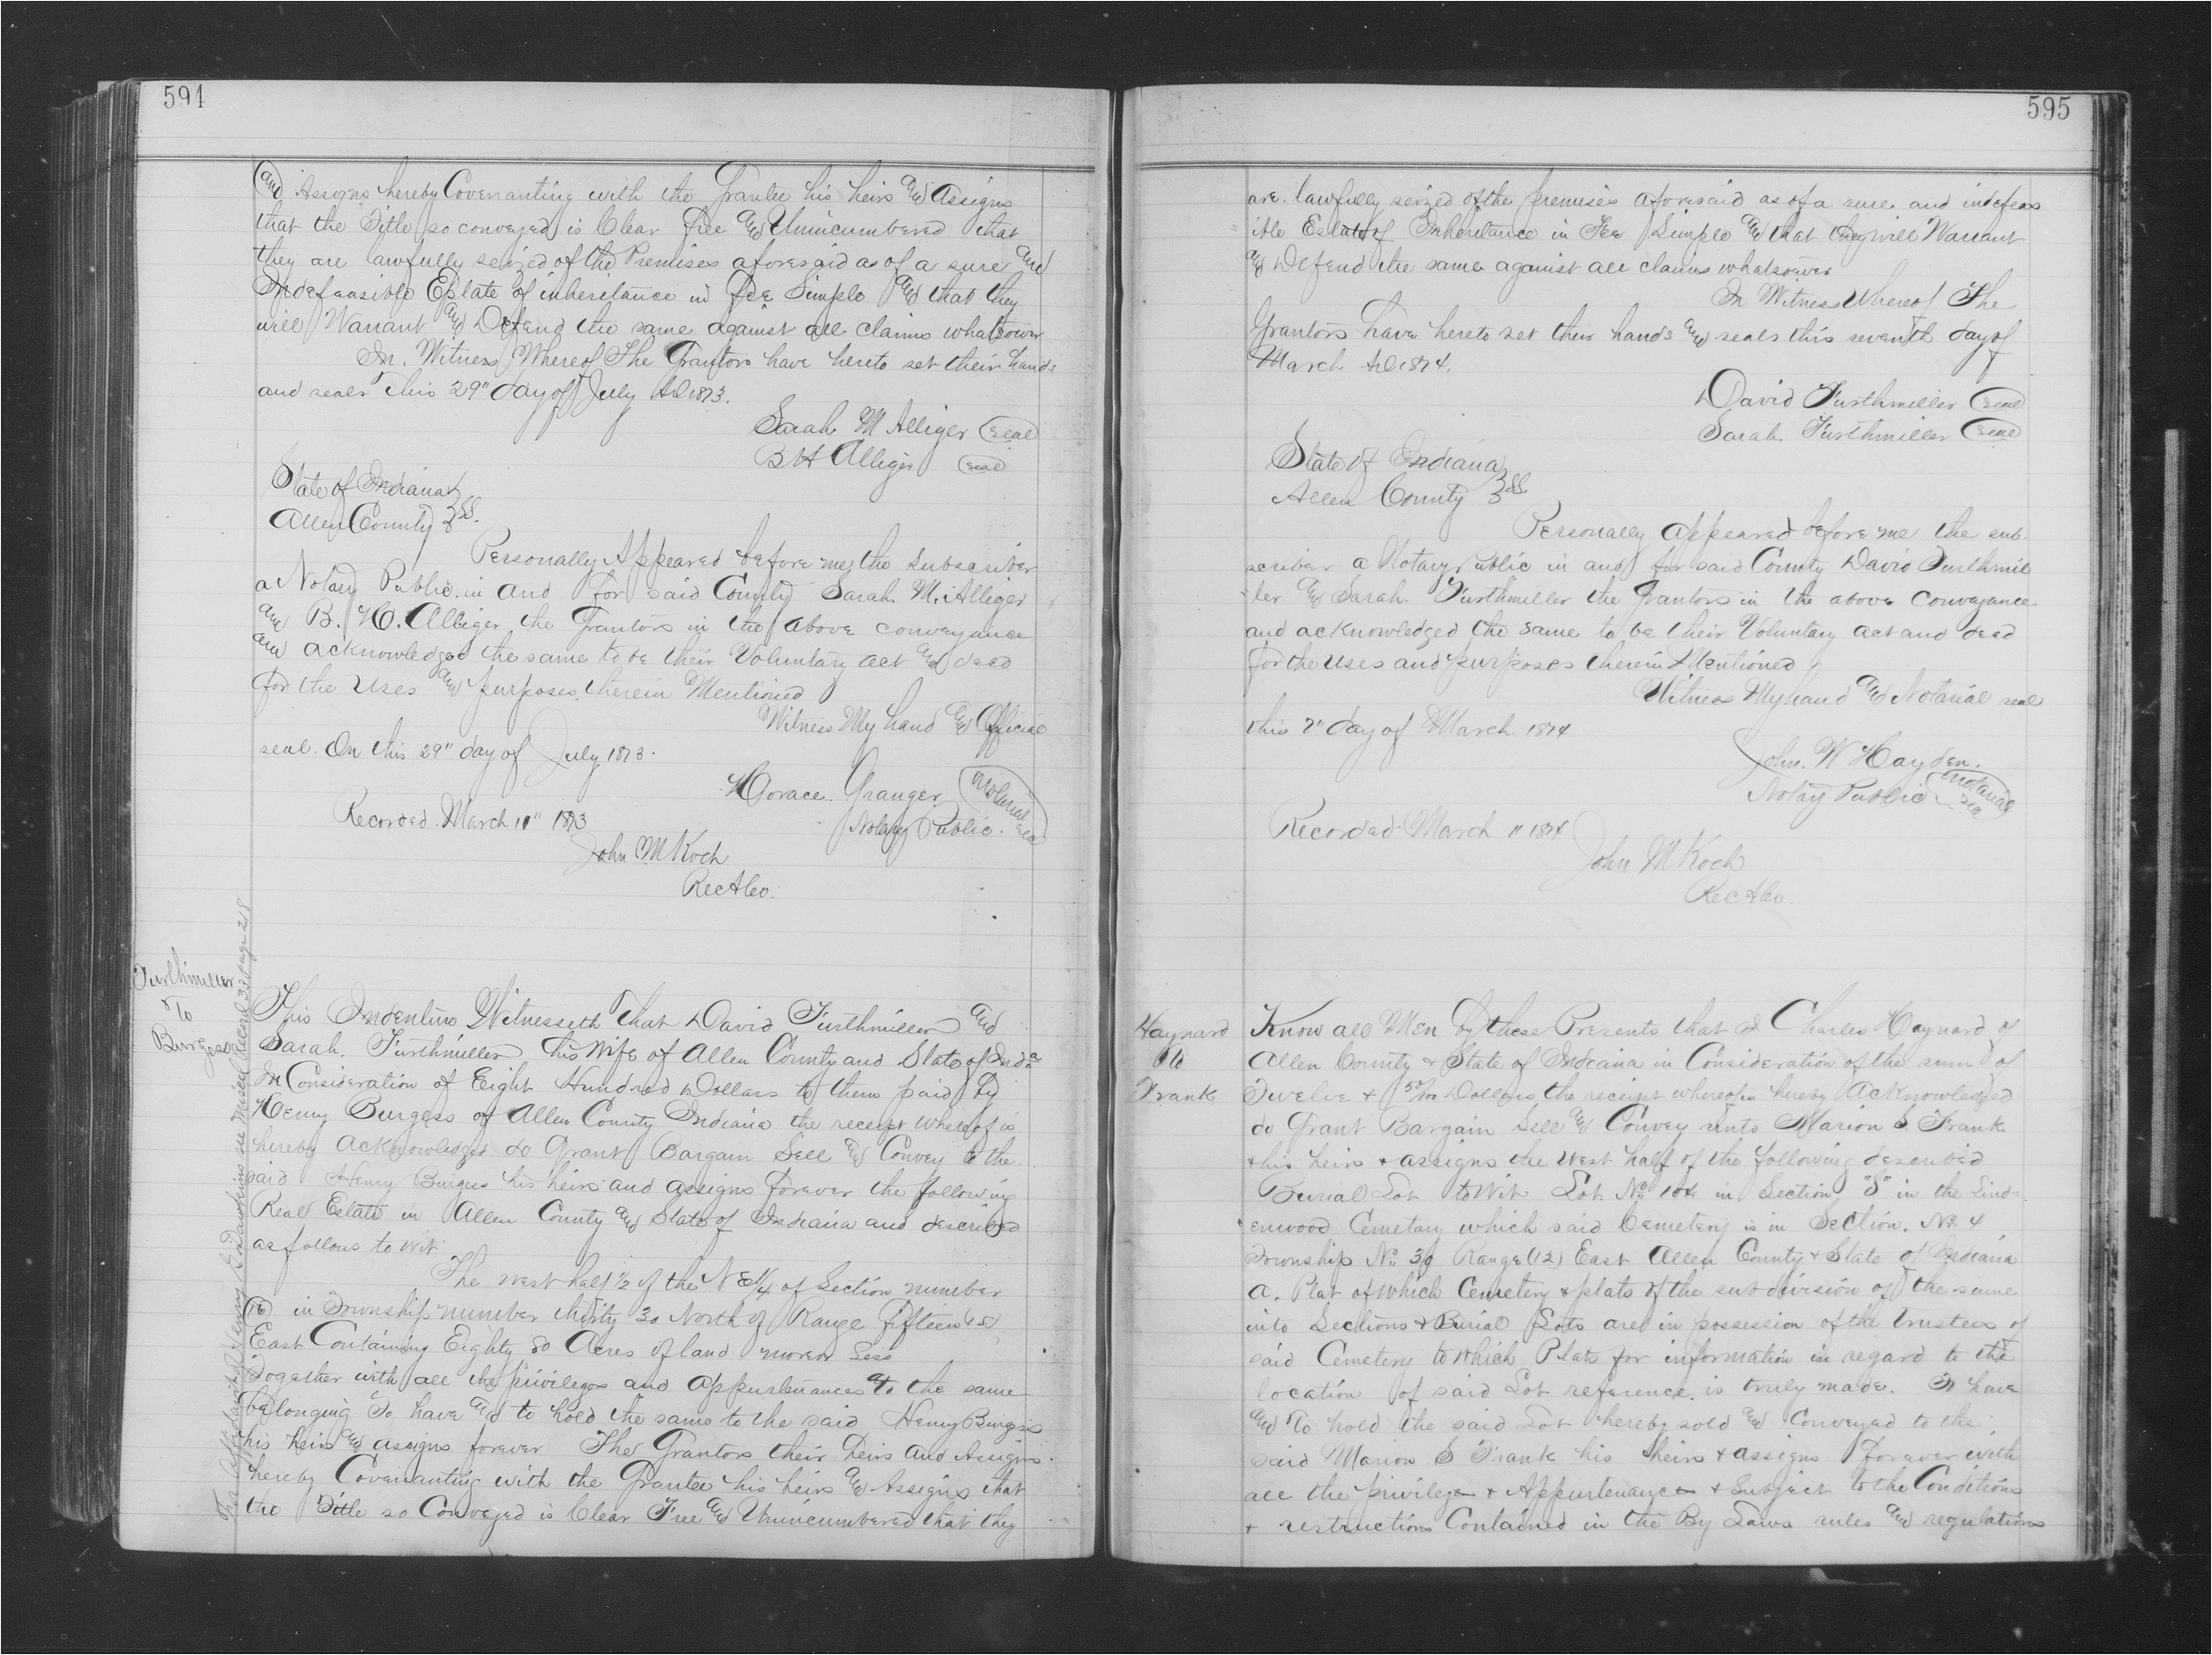 594
and Assigns hereby Covenanting with the Grantee his heirs and Assigns
that the Title so conveyed is Clear free and Unincumbered that
they are lawfully seized of the Premises aforesaid as of a sure and
Indefeasible Estate of inheretance in fee Simple and that they
will Warrant and Defend the same against all claims whatsoever
In Witness Whereof The Grantors have hereto set their hands
and seals this 29" day of July AD 1873.
Sarah M Alliger seal
B H Alliger seal
State of Indiana
Allen County ss.
Personally Appeared before me, the Subscriber
a Notary Public in and for said County Sarah M. Alliger
and B. H. Alliger the Grantors in the above conveyance
and acknowledged the same to be their Voluntary act and deed
for the Uses and purposes therein Mentioned
Witness My hand and Official
seal. On this 29" day of July 1873.
Horace Granger Notarial seal
Notary Public.
Recorded March 11" 1873
John M Koch
RecAco.
Furthmiller
To
Burgess
This Indenture Witnesseth That David Furthmiller and
Sarah Furthmiller his Wife of Allen County and State of Inda
In Consideration of Eight Hundred Dollars to them paid by
Henry Burgess of Allen County Indiana the receipt whereof is
hereby acknowledged do Grant Bargain Sell and Convey to the
said Henry Burgess his heirs and assigns forever the following
Real Estate in Allen County and State of Indiana and described
as follows to wit
The west half 1/2 of the NE 1/4 of Section number
(16) in Township number thirty 30 North of Range fifteen 15
East Containing Eighty 80 Acres of land more or Less
Together with all the privileges and appurtenances to the same
belonging To have and to hold the same to the said Henry Burgess
his heirs and assigns forever The Grantors their heirs and Assigns
hereby Covenanting with the Grantee his heirs and Assigns that
the Title so Conveyed is Clear Free and Unincumbered that they
For Affidavit of Henry see Miscl Record 33 page 218
595
are lawfully seized of the premises aforesaid as of a sure and indefeas
ible Estate of Inheritance in Fee Simple and that they will Warrant
and Defend the same against all claims whatsoever
In Witness Whereof The
Grantors have hereto set their hands and seals this seventh day of
March AD 1874.
David Furthmiller seal
Sarah Furthmiller seal
State of Indiana
Allen County ss.
Personally appeared before me the sub-
scriber a Notary Public in and for said County David Furthmil
ler and Sarah Furthmiller the Grantors in the above Conveyance
and acknowledged the same to be their Voluntary act and deed
for the Uses and purposes therein Mentioned
Witness My hand and Notarial seal
this 7" day of March 1874
John. W Hayden.
Notary Public Notarial seal
Recorded March 11 1874
John M Koch
RecAco.
Haynard
to
Frank
Know all Men by these Presents that I Charles Haynard of
Allen County & State of Indiana in Consideration of the sum of
Twelve & 50/100 Dollars the receipt whereof is hereby Acknowledged
do Grant Bargain Sell and Convey unto Marion S. Frank
& his heirs & assigns the West half of the following described
Burial Lot to Wit Lot No 104 in Section "S" in the Lind-
enwood Cemetary which said Cemetery is in Section. No 4
Township No 30 Range (12) East Allen County & State of Indiana
a. Plat of which Cemetery & plats of the sub division of the same
into Sections & Burial Lots are in possession of the trustees of
said Cemetery to which Plats for information in regard to the
location of said Lot reference is truly made. To have
and To hold the said Lot hereby sold and Conveyed to the
said Marion S Frank his heirs & assigns forever with
all the privilege & Appurtenances & Subject to the Conditions
& restructions Contained in the By Laws rules and regulations